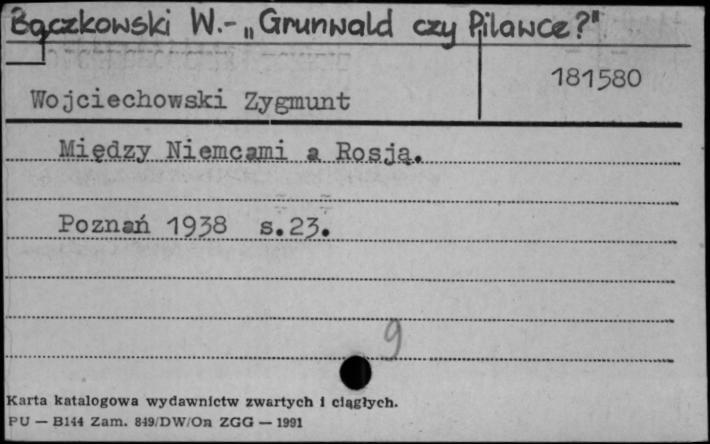 Bączkowski W.- „Grunwald czy Pilawce?"
181580
Wojciechowski Zygmunt
Między Niemcami a Rosją.
Poznań 1938 s.23.
9
Karta katalogowa wydawnictw zwartych i ciągłych.
PU — B144 Zam. 849/DW/On ZGG — 1991